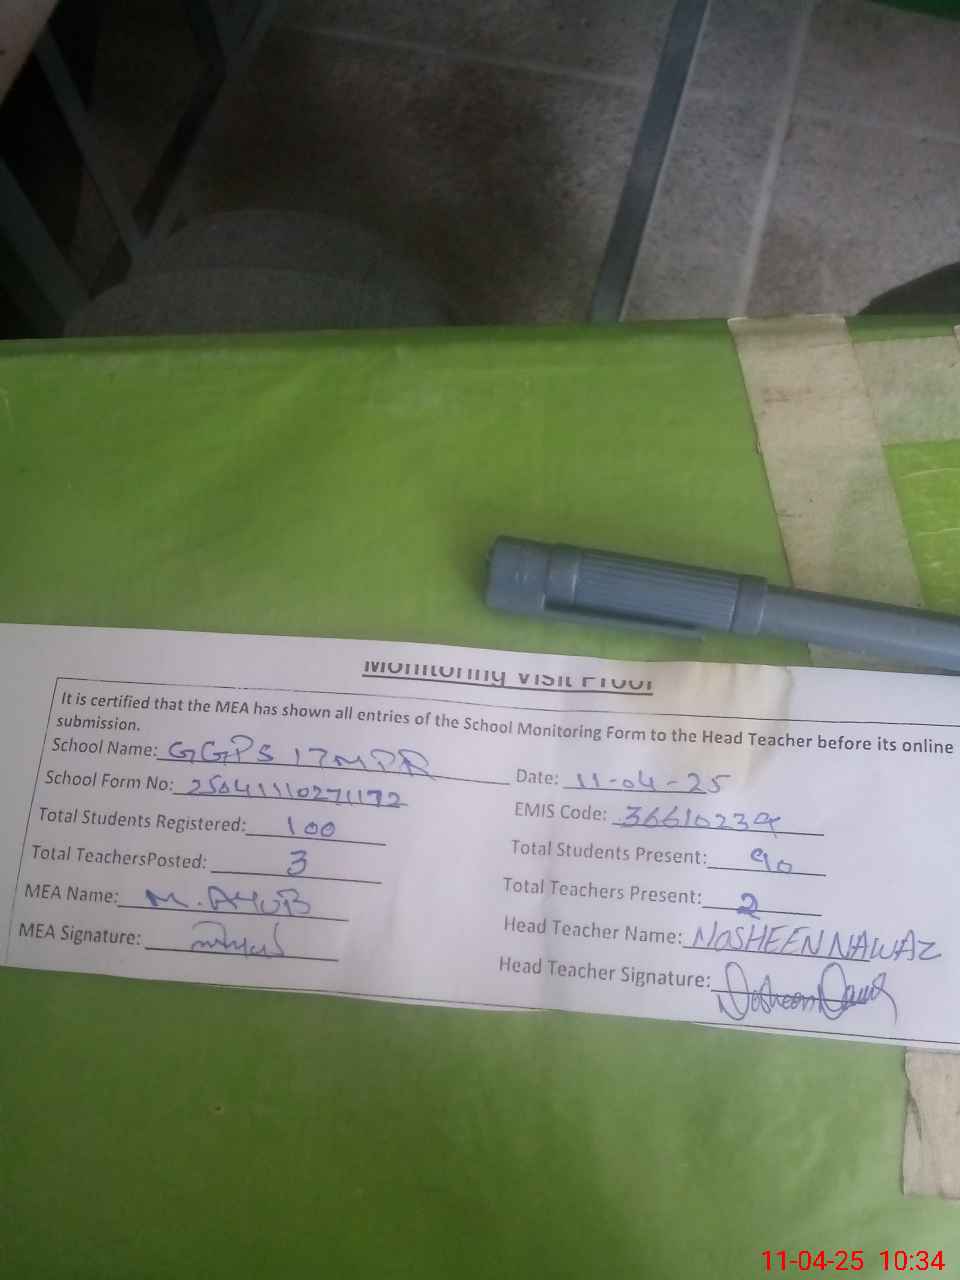 Monitoring Visit Proof
It is certified that the MEA has shown all entries of the School Monitoring Form to the Head Teacher before its online
submission.
School Name: GGPS 17MPR
Date: 11-04-25
School Form No: 25041110271172
EMIS Code: 36610239
Total Students Registered: 100
Total Students Present: 90
Total TeachersPosted: 3
Total Teachers Present: 2
MEA Name: M. AYUB
Head Teacher Name: NOSHEEN NAWAZ
MEA Signature:
Head Teacher Signature: Nosheen Nawaz
11-04-25 10:34